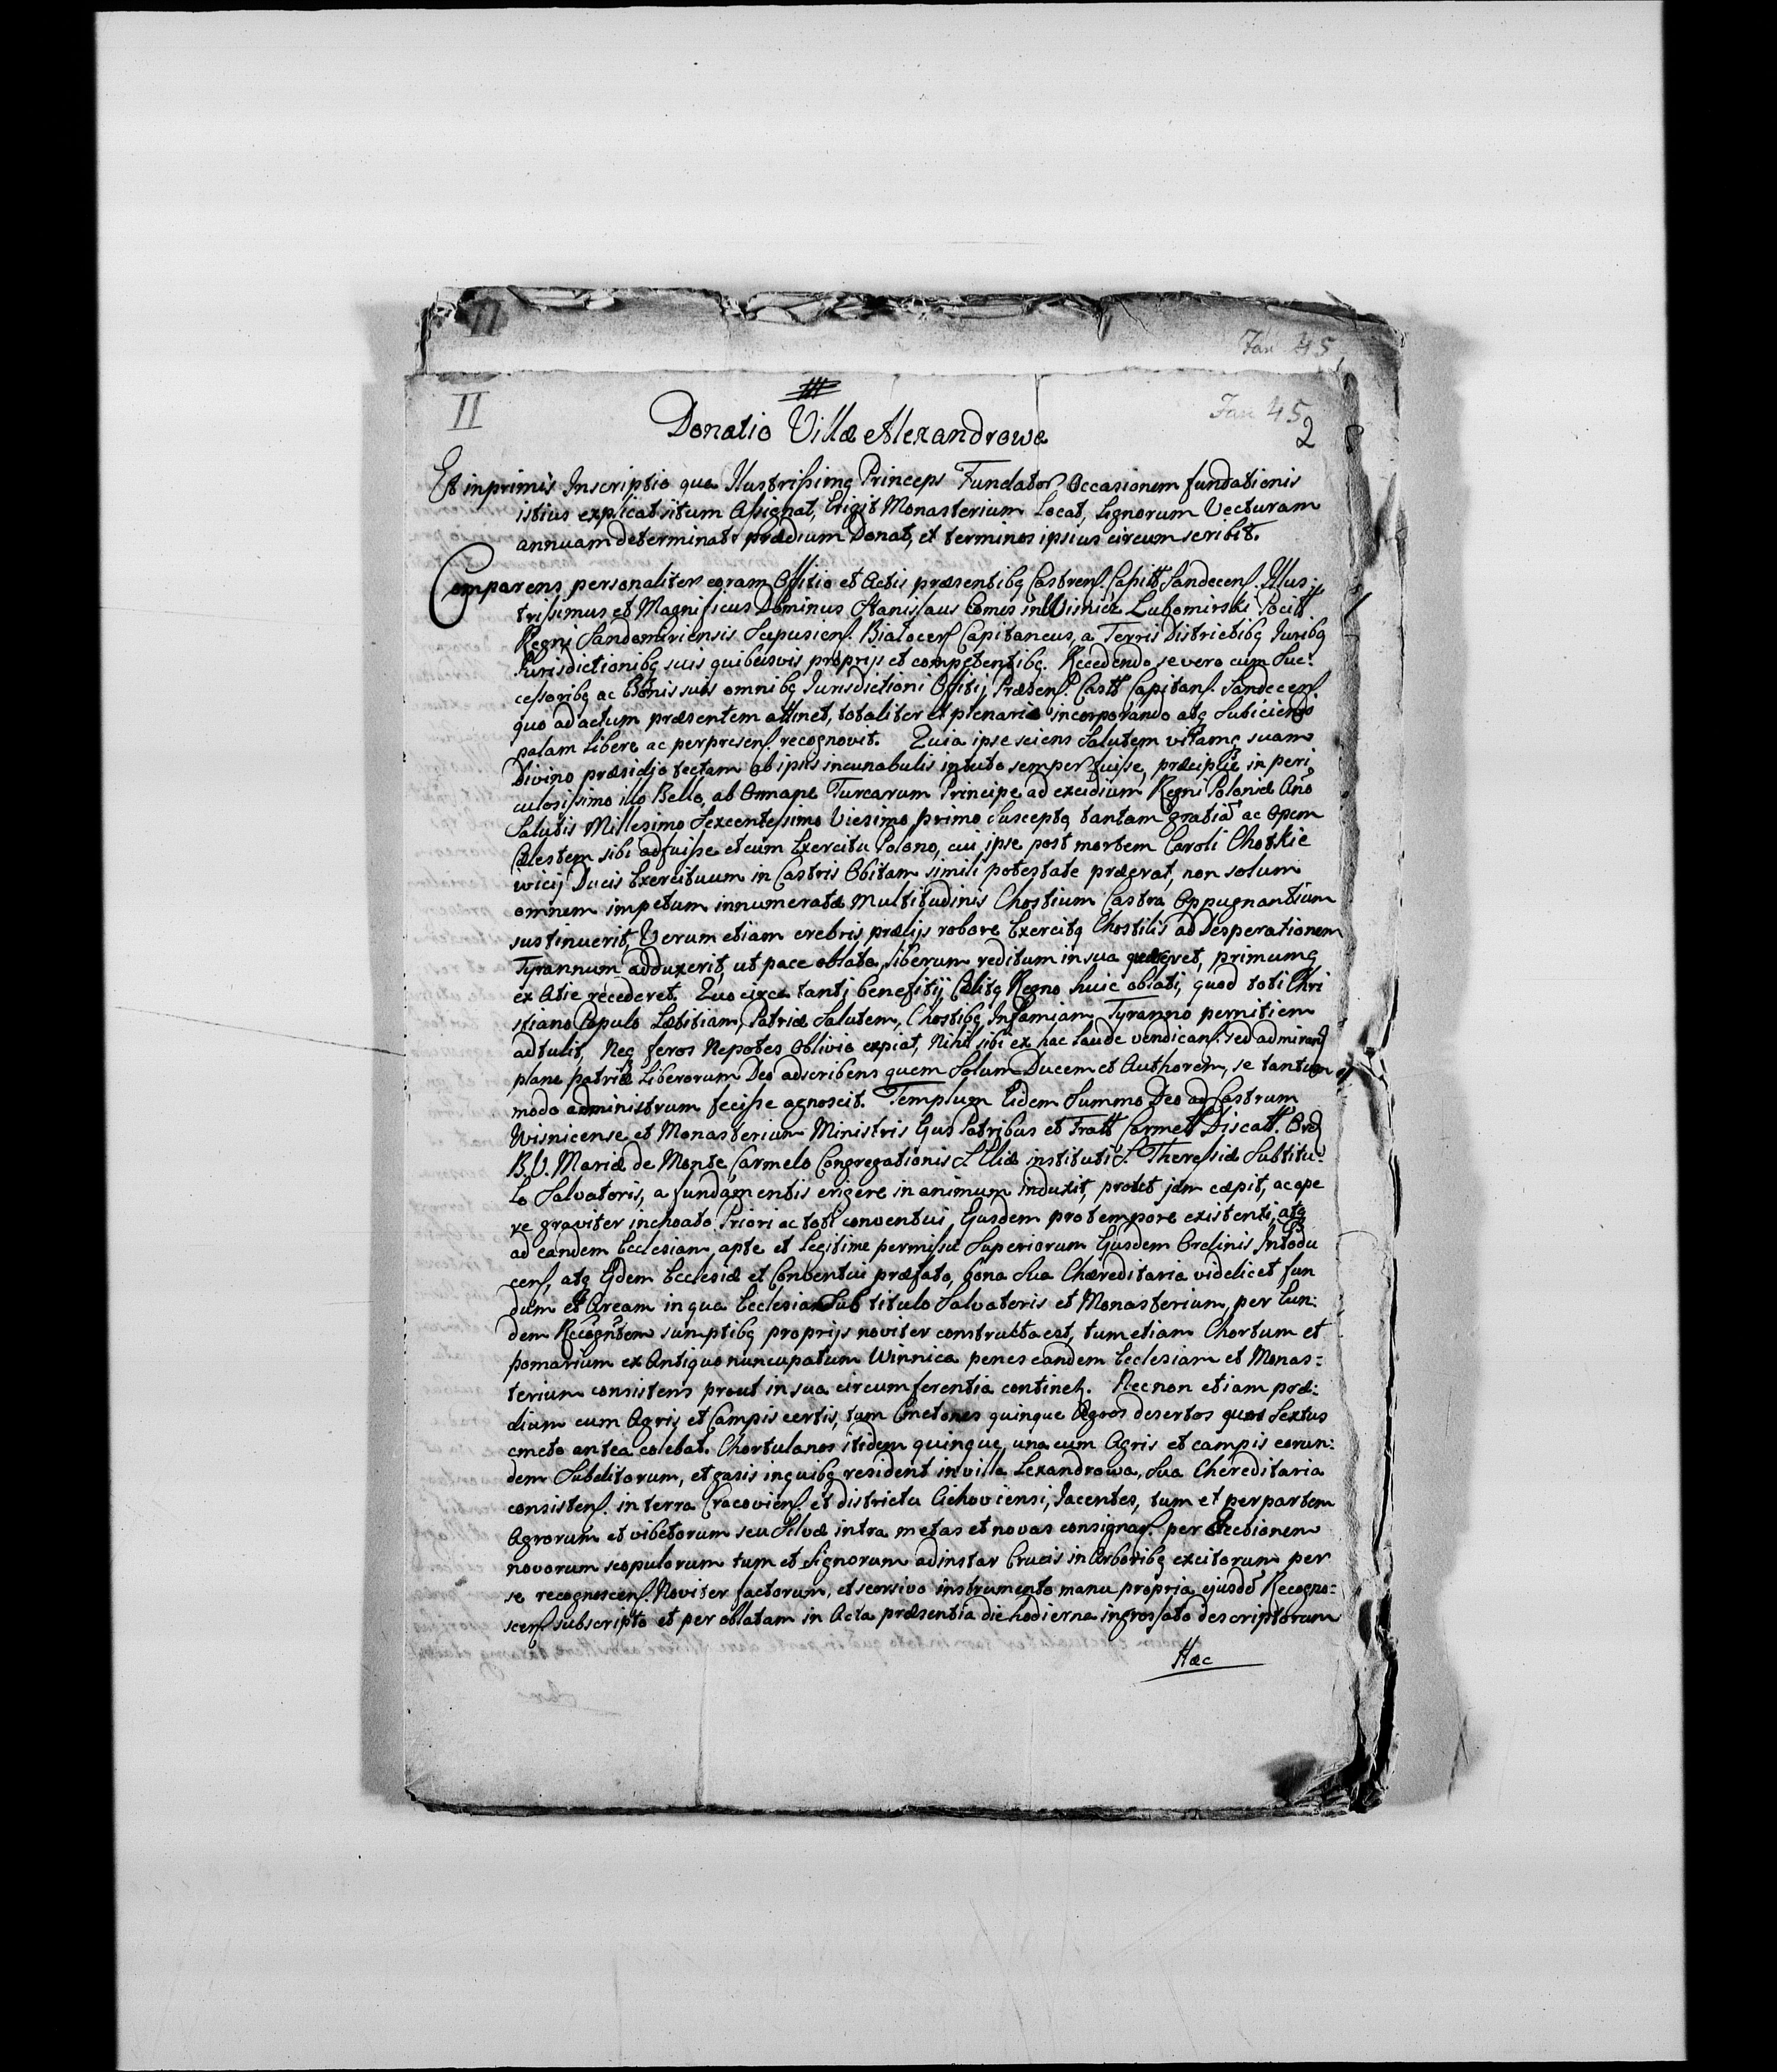 II
Jan 45
2
Donatio Villæ Alexandrowa
Et inprimis Inscriptio qua Illustrissimq Princeps Fundator Occasionem fundationis
istius explicat situm Assignat, Erigit Monasterium Locat, Lignorum Vecturam
annuam determinat prædium Donat, et terminos ipsius circumscribit.
Comparens personaliter coram Offitio et Actis præsentibq Castrens. Capitt Sandecens. Illus-
trissimus et Magnificus Dominus Stanislaus Comes in Wisnicz Lubomirski Pocitt
Regni Sandomiriensis Scepusiens. Białocers Capitaneus, a Terris Districtibq Juribq
Jurisdictionibq suis quibusvis proprijs et competentibq. Recedendo se vero cum Suc-
cessoribq ac Bonis suis omnibq Jurisdictioni Offitij Præsens. Castt Capitan. Sandecens.
quo ad actum præsentem attinet, totaliter et plenarie incorporando atq Subiciendo
palam libere ac per præsens. recognovit. Quia ipse sciens Salutem vitamq suam
Divino præsidjo tectam ab ipsis incunabulis in tuto semper fuisse, præcipue in peri
culosissimo illo Bello, ab Osmane Turcarum Principe ad excidium Regni Poloniæ Ano
Salutis Millesimo Sexcentesimo Viesimo primo Susceptq tantam gratiã ac Opem
Cælestem sibi adfuisse et cum Exercitu Polono, cui ipse post mortem Caroli Chotkie
wicij Ducis Exercituum in Castris Obitam simili potestate præerat, non solum
omnem impetum innumeratæ Multitudinis Chostium Castra Oppugnantium
sustinuerit, Verum etiam crebris prælijs robore Exercitq Chostilis ad Desperationem
Tyrannum adduxerit, ut pace oblata, liberum reditum in sua quæreret, primumq
ex Atie recederet. Quo circa tanti benefitij Cælitq Regno huic oblati, quod toti Chri
stiano Populo Lætitiam, Patriæ Salutem, Chostibq Infamiam Tyranno pernitiem
adtulit, Neq feros Nepotes Oblivio expiat, Nihil sibi ex hac Laude vendicans. sed admirans
plane patriæ Liberorum Deo adscribens quem Solum Ducem et Authorem, se tantum
modo administrum fecisse agnoscit. Templum Eidem Summo Deo ad Castrum
Wisnicense et Monasterium Ministris Ejus Patribus et Fratt Carmett Discatt. Ord
B.V. Mariæ de Monte Carmelo Congregationis S. Eliæ instituti S. Theresiæ Sub titu-
lo Salvatoris, a fundamentis erigere in animum induxit, prout jam cæpit, ac ope
re graviter inchoato Priori ac toti conventui, Ejusdem pro tempore existenti, atq
ad eandem Ecclesiam, apte et Legitime permissu Superiorum Ejusdem Ordinis Introdu
cens, atq Ejdem Ecclesiæ et Conventui præfato, bona Sua Chæreditaria videlicet fun
dum et Aream in qua Ecclesia Sub titulo Salvatoris et Monasterium, per Eun-
dem Recogntem sumptibq proprijs noviter constructa est, tum etiam Chortum et
pomarium ex Antiquo nuncupatum Winnica penes eandem Ecclesiam et Monas-
terium consistens prout in sua circumferentia continetq. Nec non etiam præ-
dium cum Agris et Campis certis, tum Cmetones quinque Agros desertos quos Sextus
cmeto antea colebat. Chortulanos itidem quinque, una cum Agris et campis eorun-
dem Subditorum, et casis in quibq resident in villa Lexandrowa, Sua Chereditaria
consistens. in terra Cracoviens. et districtu Cichoviensi, Jacentes, tum et per partem
Agrorum et vibetorum seu Silvæ intra metas et novas consignas. per Erectionem
novorum scopulorum tum et Signorum ad instar Crucis in Arboribq excitorum per
se recognoscens. Noviter factorum, et scorsivo instrumento manu propria ejusdẽ Recogno-
scens subscripto et per oblatam in Acta præsentia die hodierna ingrossato descriptorum
Hæc